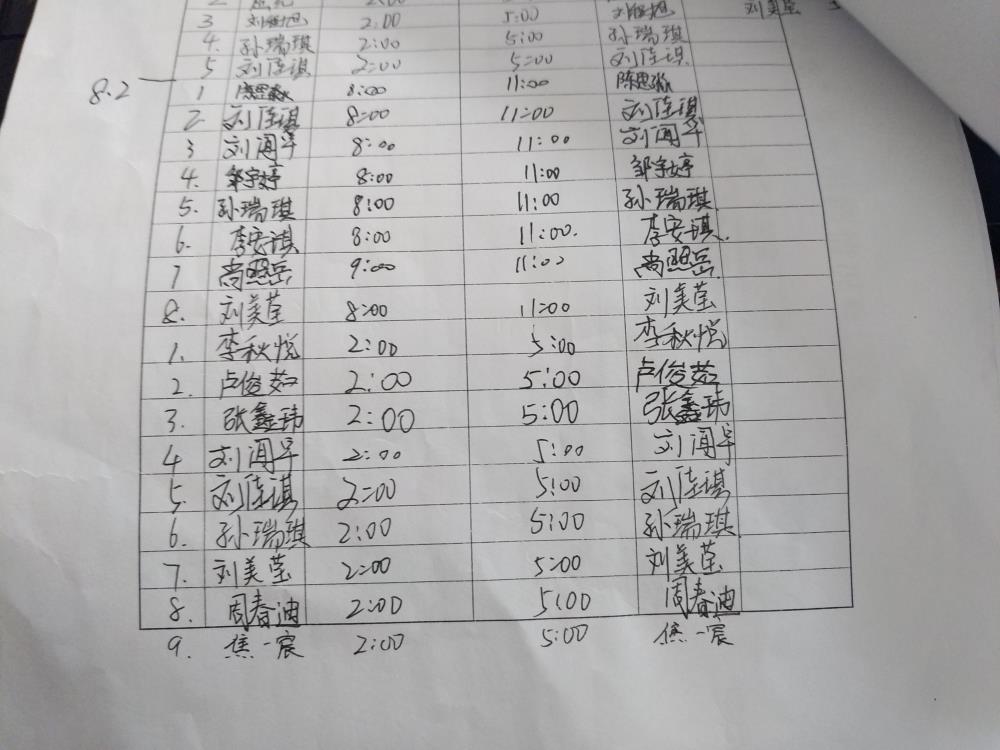 2:00
3 2:00 5:00 刘美莹
4. 孙瑞琪 2:00 5:00 孙瑞琪
5 刘佳琪 2:00 5:00 刘佳琪
8.2 1 陈思淼 8:00 11:00 陈思淼
2. 刘佳琪 8:00 11:00 刘佳琪
3 刘闻早 8:00 11:00 刘闻早
4. 邹宇婷 8:00 11:00 邹宇婷
5. 孙瑞琪 8:00 11:00 孙瑞琪
6. 李安琪 8:00 11:00. 李安琪.
7 尚照岳 9:00 11:00 尚照岳
8. 刘美莹 8:00 11:00 刘美莹
1. 李秋悦 2:00 5:00 李秋悦
2. 卢俊茹 2:00 5:00 卢俊茹
3. 张鑫玮 2:00 5:00 张鑫玮
4 刘闻早 2:00 5:00 刘闻早
5. 刘佳琪 2:00 5:00 刘佳琪
6. 孙瑞琪 2:00 5:00 孙瑞琪
7. 刘美莹 2:00 5:00 刘美莹
8. 周春迪 2:00 5:00 周春迪
9. 焦一宸 2:00 5:00 焦一宸